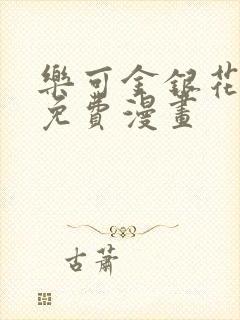 樂可金銀花
免費漫畫
古蕭